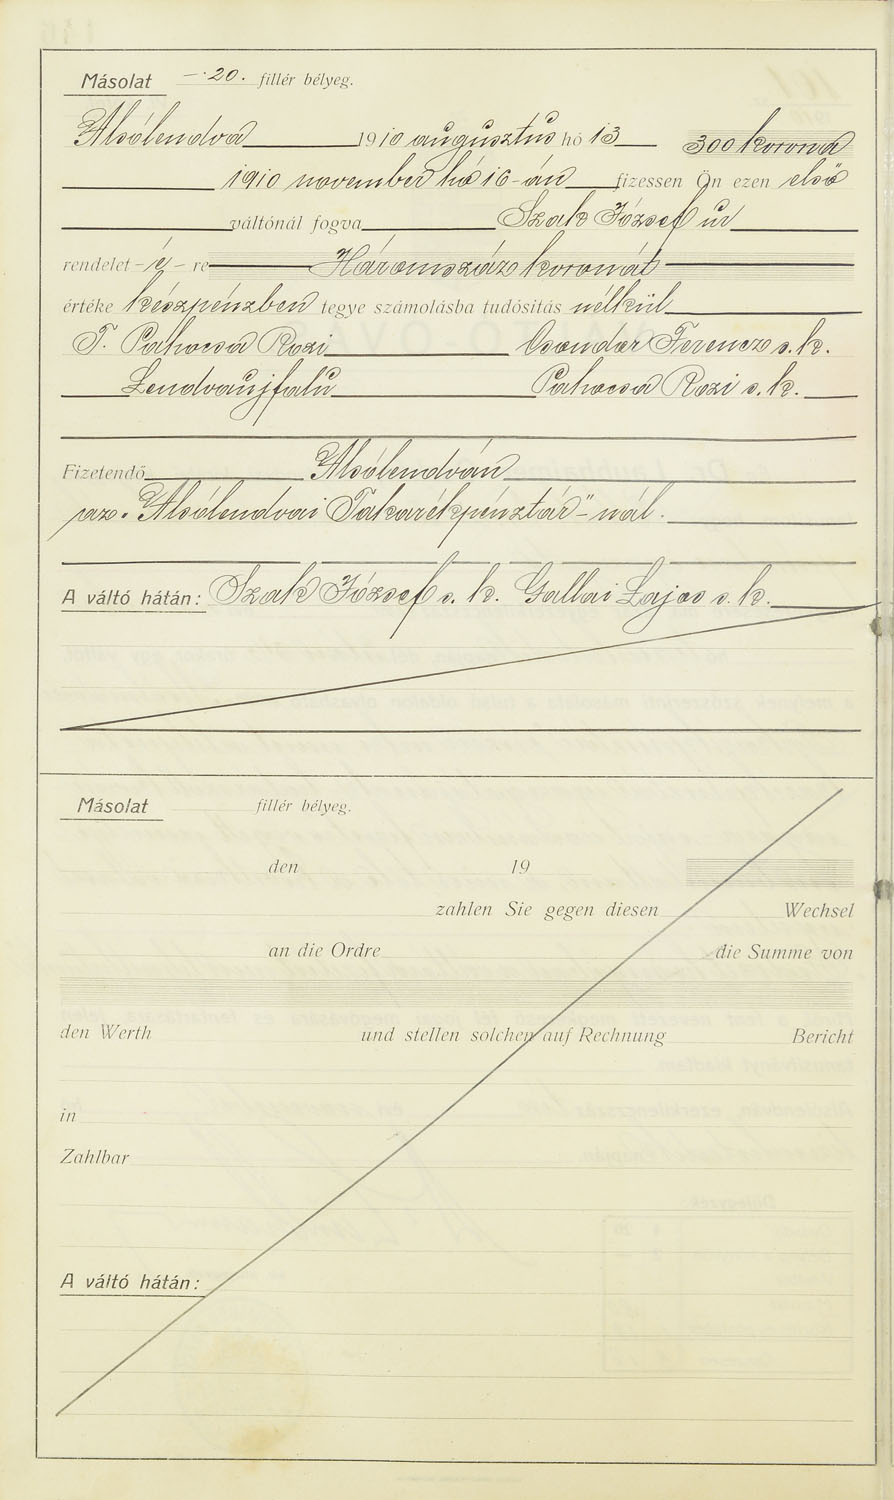 Másolat —·20. fillér bélyeg.
Alsólendva 1910 augusztus hó 13 300 korona
1910 november hó 16-án fizessen Ön ezen első
váltónál fogva Szak József úr
rendelet-é-re Háromszáz koronát
értéke készpénzben tegye számolásba tudósitás nélkül
T. Pahocsa Rozi Csondor Ferencz s. k.
Lendvaujfalu Pahocsa Rozi s. k.
Fizetendő Alsólendván
az „Alsólendvai Takarékpénztár"-nál.
A váltó hátán: Szak József s. k. Gallai Lajos s. k.
Másolat fillér bélyeg.
den 19
zahlen Sie gegen diesen Wechsel
an die Ordre die Summe von
den Werth und stellen solchen auf Rechnung Bericht
in
Zahlbar
A váltó hátán: